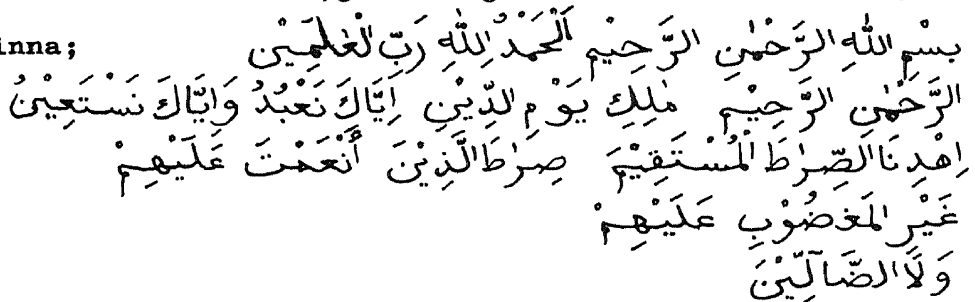 inna; بِسْمِ اللهِ الرَّحْمٰنِ الرَّحِيْمِ اَلْحَمْدُ لِلّٰهِ رَبِّ الْعٰلَمِيْن
الرَّحْمٰنِ الرَّحِيْمِ مٰلِكِ يَوْمِ الدِّيْنِ اِيَّاكَ نَعْبُدُ وَاِيَّاكَ نَسْتَعِيْنُ
اِهْدِنَا الصِّرَاطَ الْمُسْتَقِيْمَ صِرَاطَ الَّذِيْنَ أَنْعَمْتَ عَلَيْهِمْ
غَيْرِ المَغْضُوْبِ عَلَيْهِمْ
وَلَا الضَّآلِّيْنَ